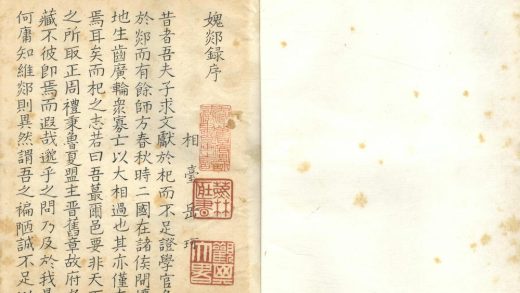 媿郯録序
相臺岳珂
昔者吾夫子求文獻於杞而不足證學官
於郯而有餘師方春秋時二國在諸侯間壤
地生齒廣輪衆寡士以大相過也其亦僅
焉耳矣而杞之志若曰吾蕞爾邑要非天下
之所取正周禮秉魯夏盟主晉舊章故府
藏不彼卽焉而遐哉邈乎之問乃及於我是
何庸知維郯則異然謂吾之褊陋誠不足以